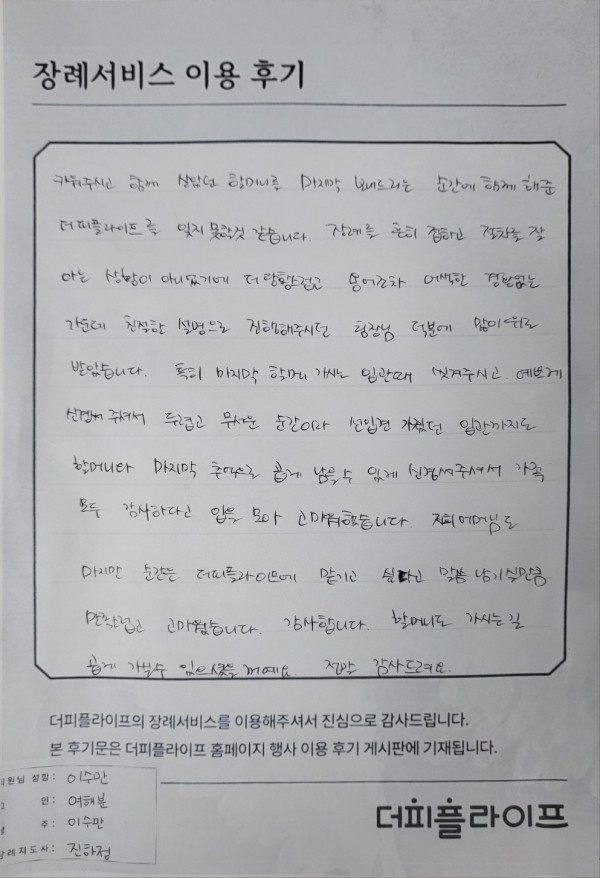 장례서비스 이용 후기
키워주시고 함께 살았던 할머니를 마지막 보내드리는 순간에 함께 해준
더피플라이프를 잊지 못할것 같습니다. 장례를 흔히 접하고 절차를 잘
아는 상황이 아니였기에 더 당황스럽고 용어조차 어색한 경황없는
가운데 친절한 설명으로 진행해주시던 팀장님 덕분에 많이 위로
받았습니다. 특히 마지막 할머니 가시는 입관때 씻겨주시고 예쁘게
신경써 주셔서 두렵고 무서운 순간이라 선입견 가졌던 입관까지도
할머니와 마지막 추억으로 곱게 남을수 있게 신경써주셔서 가족
모두 감사하다고 입을 모아 고마워했습니다. 저희어머님도
마지막 순간은 더피플라이프에 맡기고 싶다고 말씀 남기실만큼
만족스럽고 고마웠습니다. 감사합니다. 할머니도 가시는길
곱게 가실수 있으셨을꺼예요. 정말 감사드려요.
더피플라이프의 장례서비스를 이용해주셔서 진심으로 감사드립니다.
본 후기문은 더피플라이프 홈페이지 행사 이용 후기 게시판에 기재됩니다.
회원님 성함: 이수만
고 인: 여해분
상 주: 이수만
장례지도사: 진하정
더피플라이프